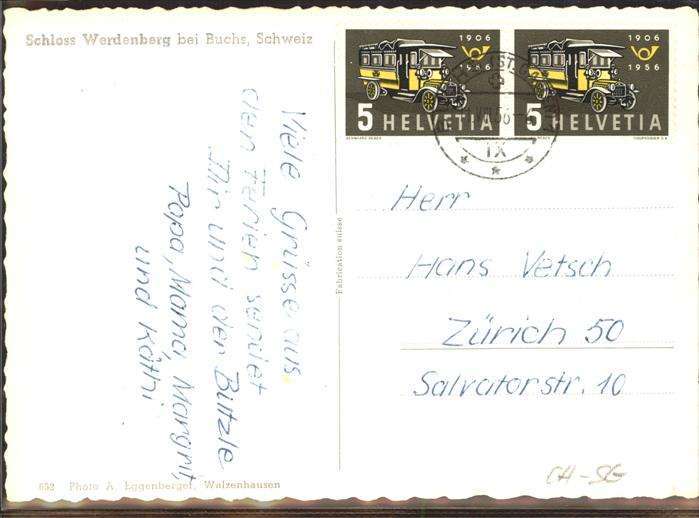 Schloss Werdenberg bei Buchs, Schweiz
1906
1956
5 HELVETIA
1906
1956
5 HELVETIA
IX
Viele Grüsse aus
den Ferien sendet
Dir und der Butzle
Papa, Mama, Margrit,
und Käthi
Fabrication suisse
Herr
Hans Vetsch
Zürich 50
Salvatorstr. 10
652 Photo A. Eggenberger, Walzenhausen
CH-SG